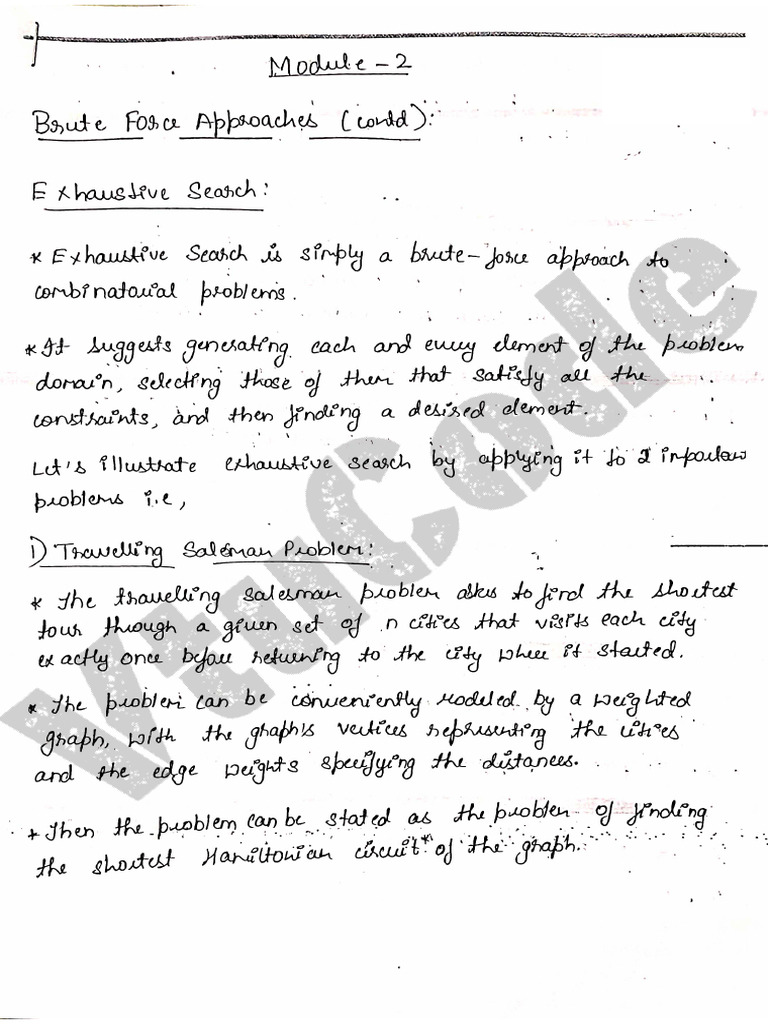 Module - 2
Brute Force Approaches (contd):
Exhaustive Search:
* Exhaustive Search is simply a brute-force approach to
combinatorial problems.
* It suggests generating each and every element of the problem
domain, selecting those of them that satisfy all the
constraints, and then finding a desired element.
Let's illustrate exhaustive search by applying it to 2
problems i.e,
1) Travelling Salesman Problem:
* The travelling salesman problem asks to find the shortest
tour through a given set of n cities that visits each city
exactly once before returning to the city where it started.
* The problem can be conveniently modeled by a weighted
graph, with the graph's vertices representing the cities
and the edge weights specifying the distances.
* Then the problem can be stated as the problem of finding
the shortest Hamiltonian circuit* of the graph.
VtuCode